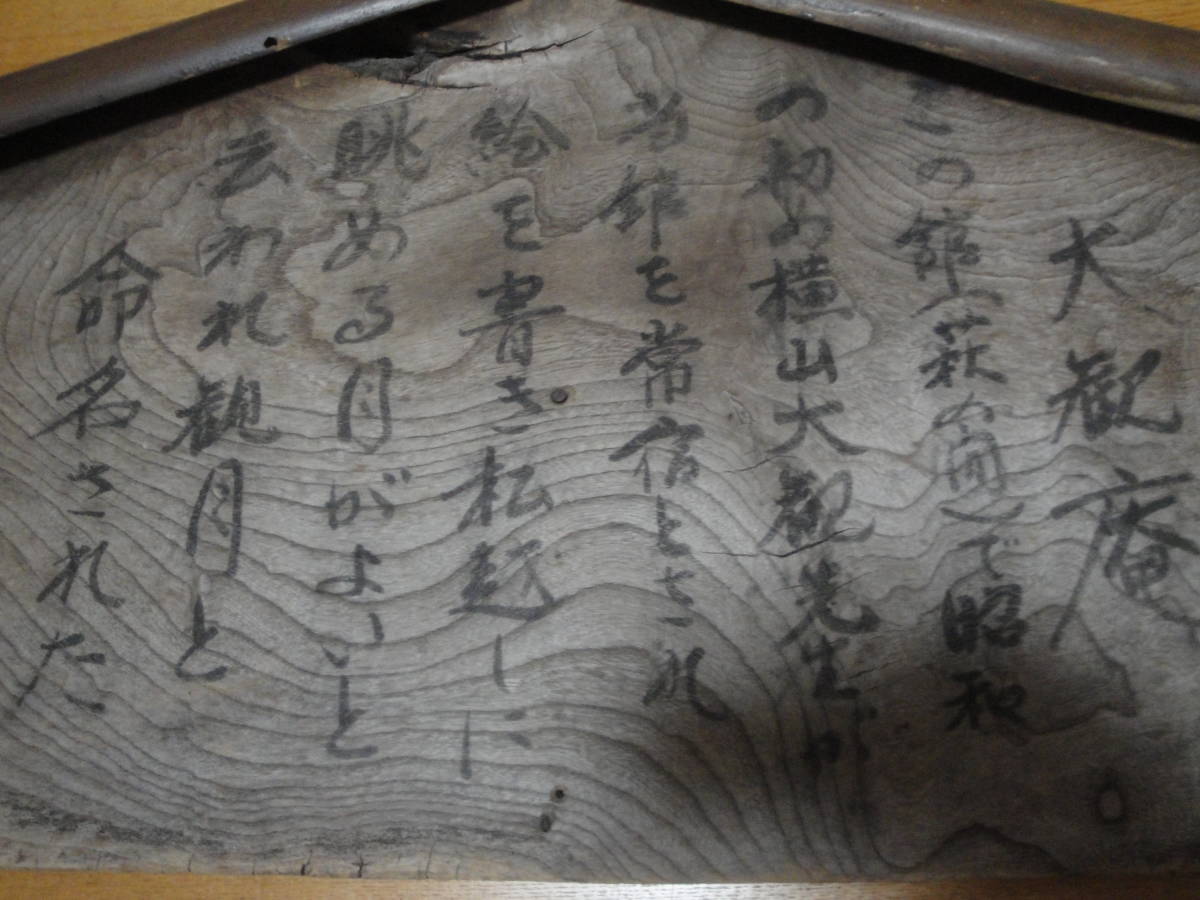 大観庵
この館(萩の間)で昭和
の初め横山大観先生が
当館を常宿とされ
絵を書き松越しに
眺める月がよいと
云われ観月と
命名された